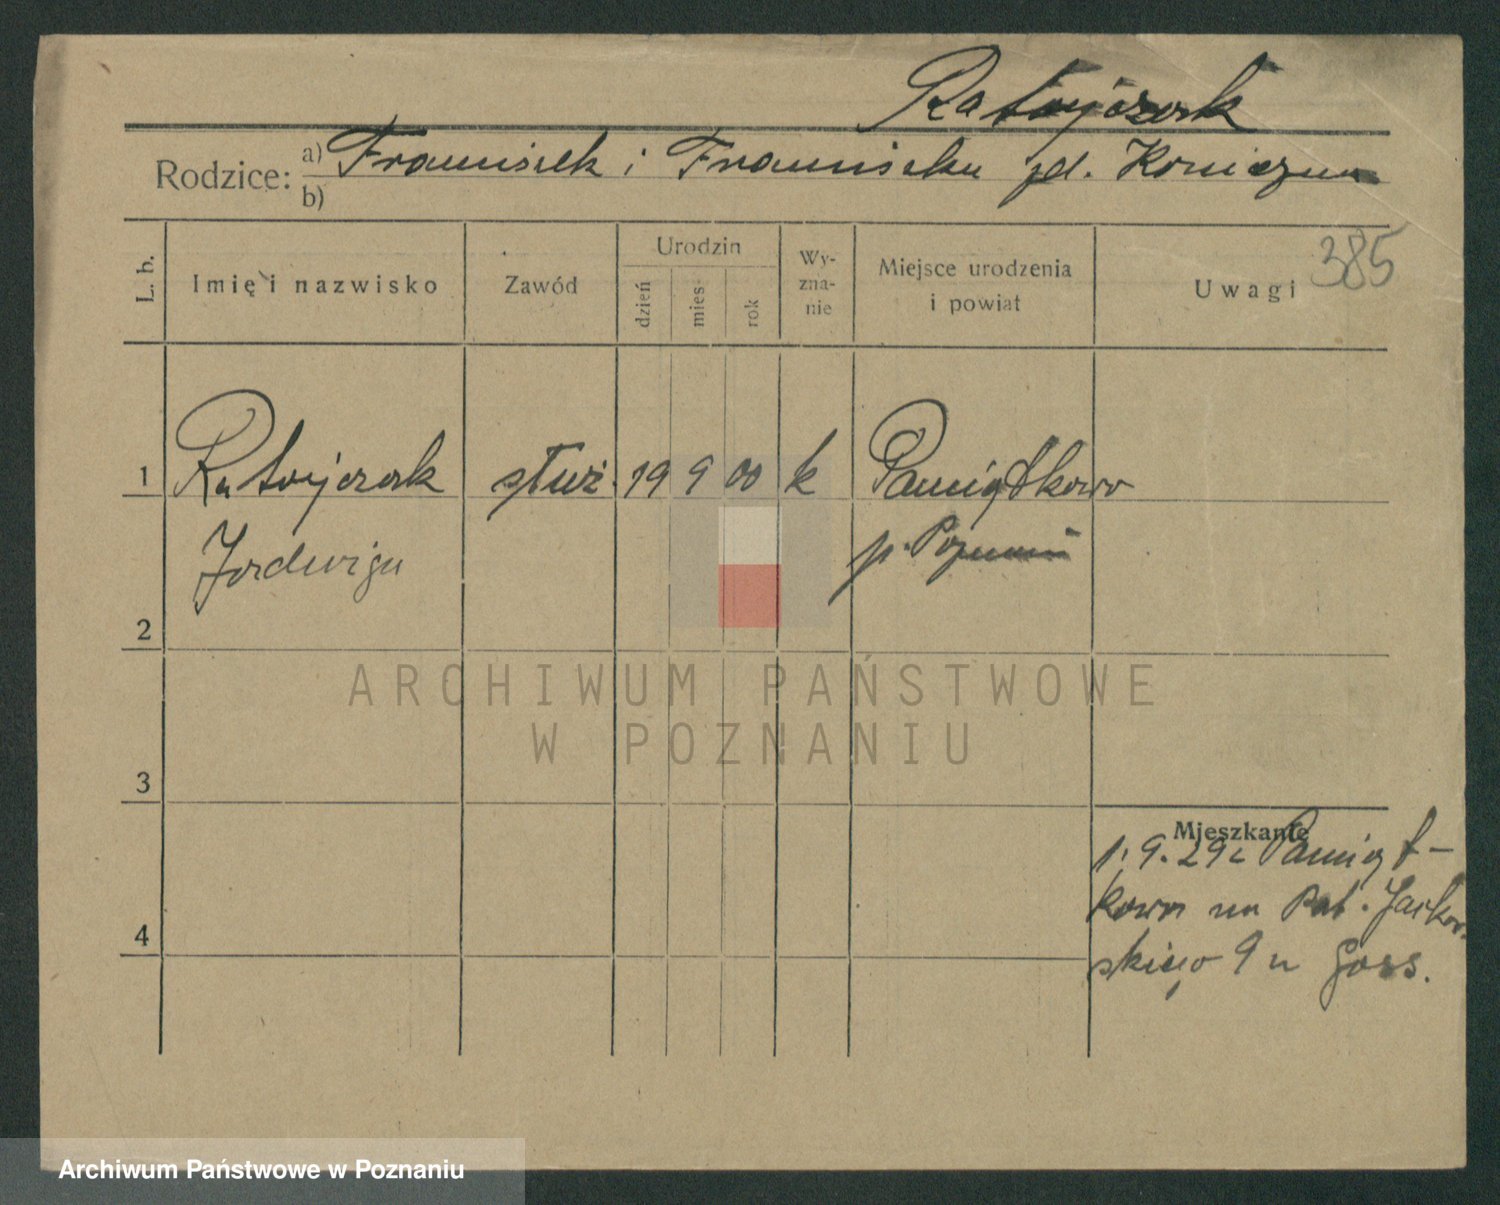 Ratajczak
Rodzice: a) Franciszek i Franciszka zd. Konieczna
b)
385
L. b.
Imię i nazwisko
Zawód
Urodzin
dzień
mies-
rok
Wy-
zna-
nie
Miejsce urodzenia
i powiat
Uwagi
1 Ratajczak służ. 19 9 00 k Pamiątkowo
Jadwiga p. Poznań
2
3
4
Mieszkanie
1. 9. 29 z Pamiąt-
kowa na Pat. Jackow-
skiego 9 u
ARCHIWUM PAŃSTWOWE
W POZNANIU
Archiwum Państwowe w Poznaniu